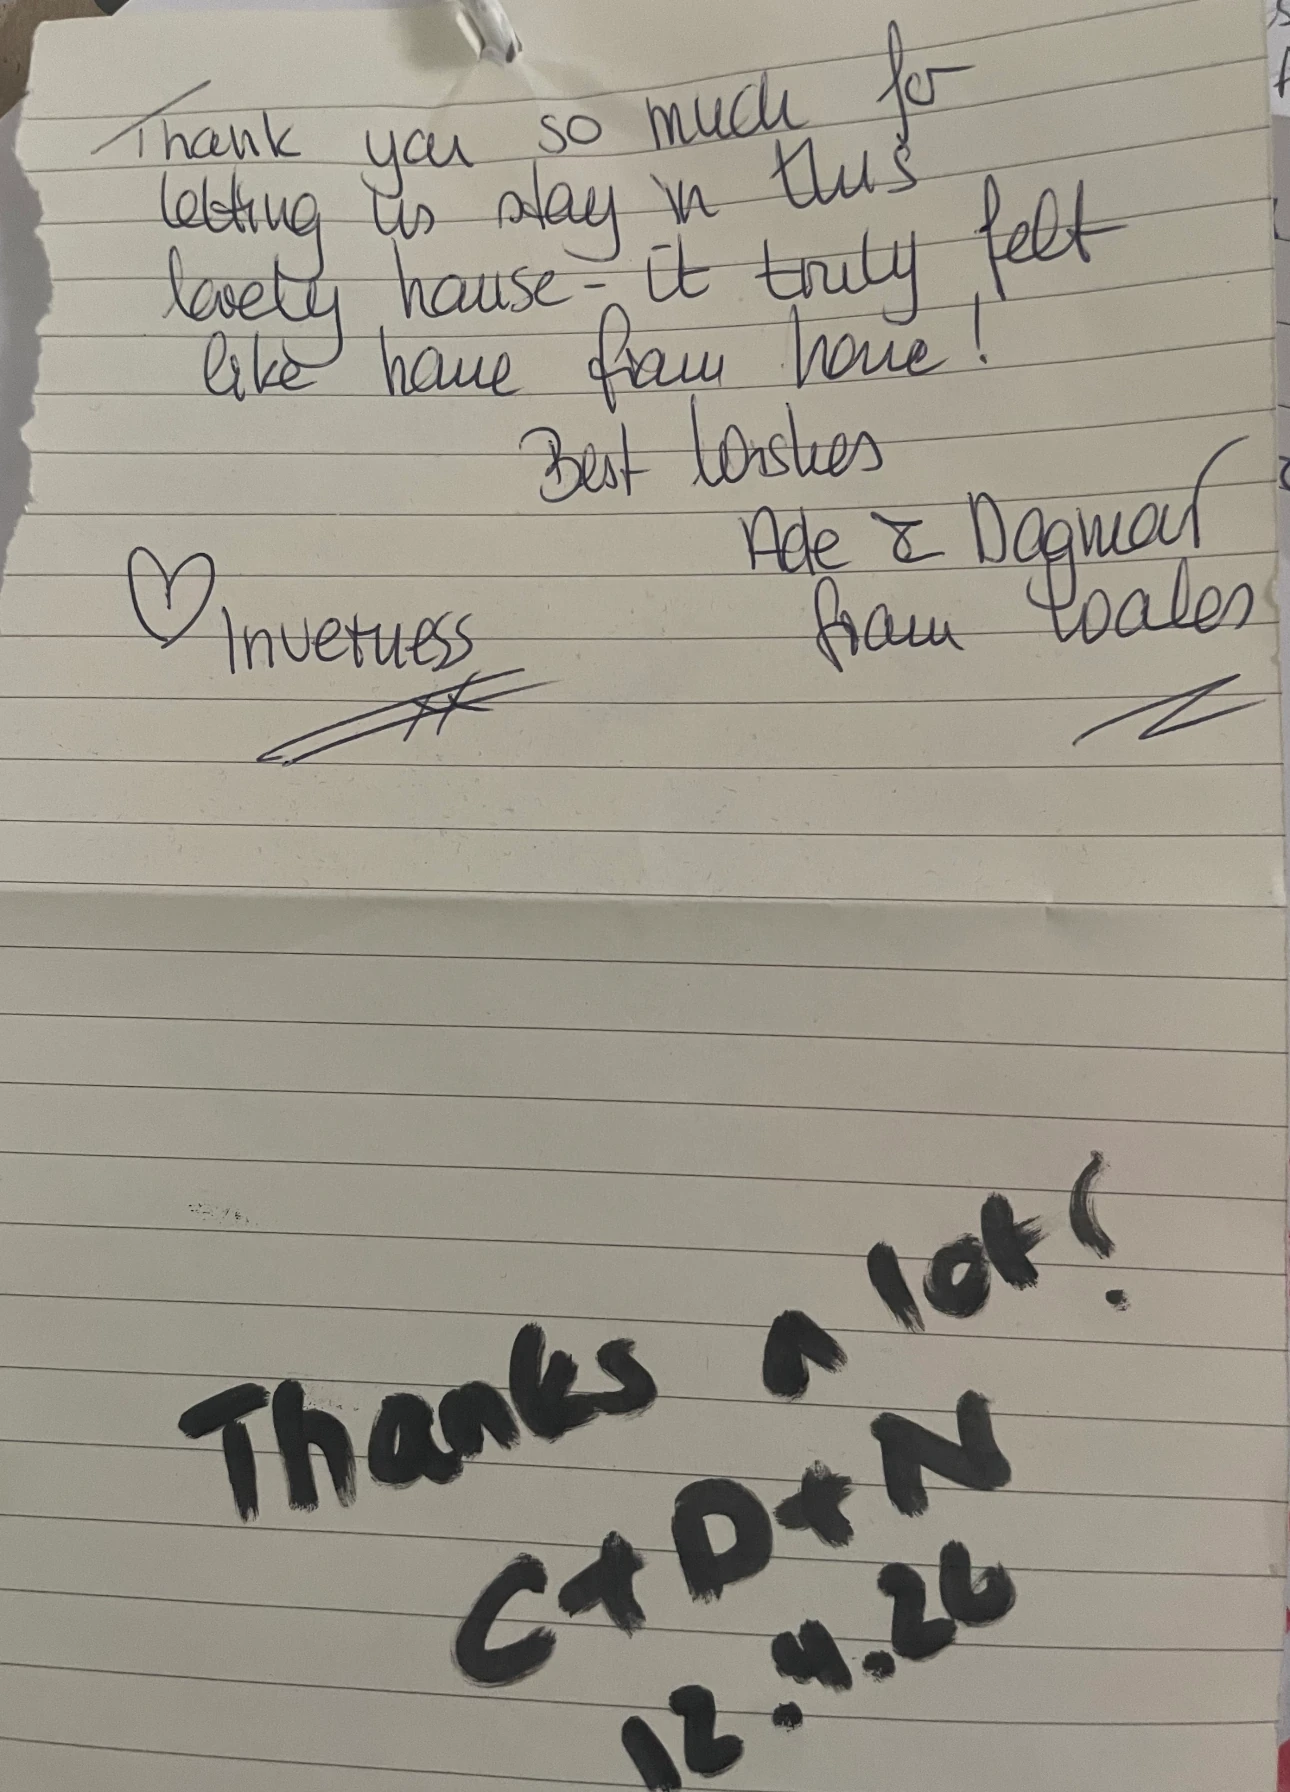 Thank you so much for
letting us stay in this
lovely house - it truly felt
like home from home!
Best Wishes
Ade & Dagmar
from Wales
♡ Inverness
Thanks a lot!
C+D+N
12.4.26